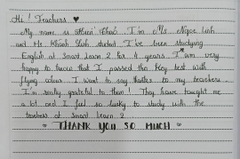 Hi! Teachers ♥
My name is Khôi. I'm Ms Ngoc Linh
and Mr Khánh Linh student. I've been studying
English at Smart Learn 2 for 4 years. I am very
happy to know that I passed the Key test with
flying colour. I want to say thanks to my teachers.
I'm really grateful to them! They have taught me
a lot and I feel so lucky to study with the
teachers at Smart Learn 2.
THANK YOU SO MUCH ♥